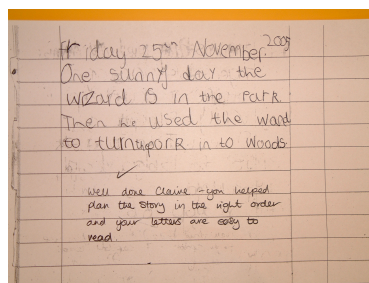 Friday 25th November. 2005
One sunny day the
wizard is in the Park
Then he used the wand
to turn the park in to woods
well done Claire - you helped
plan the story in the right order
and your letters are easy to
read